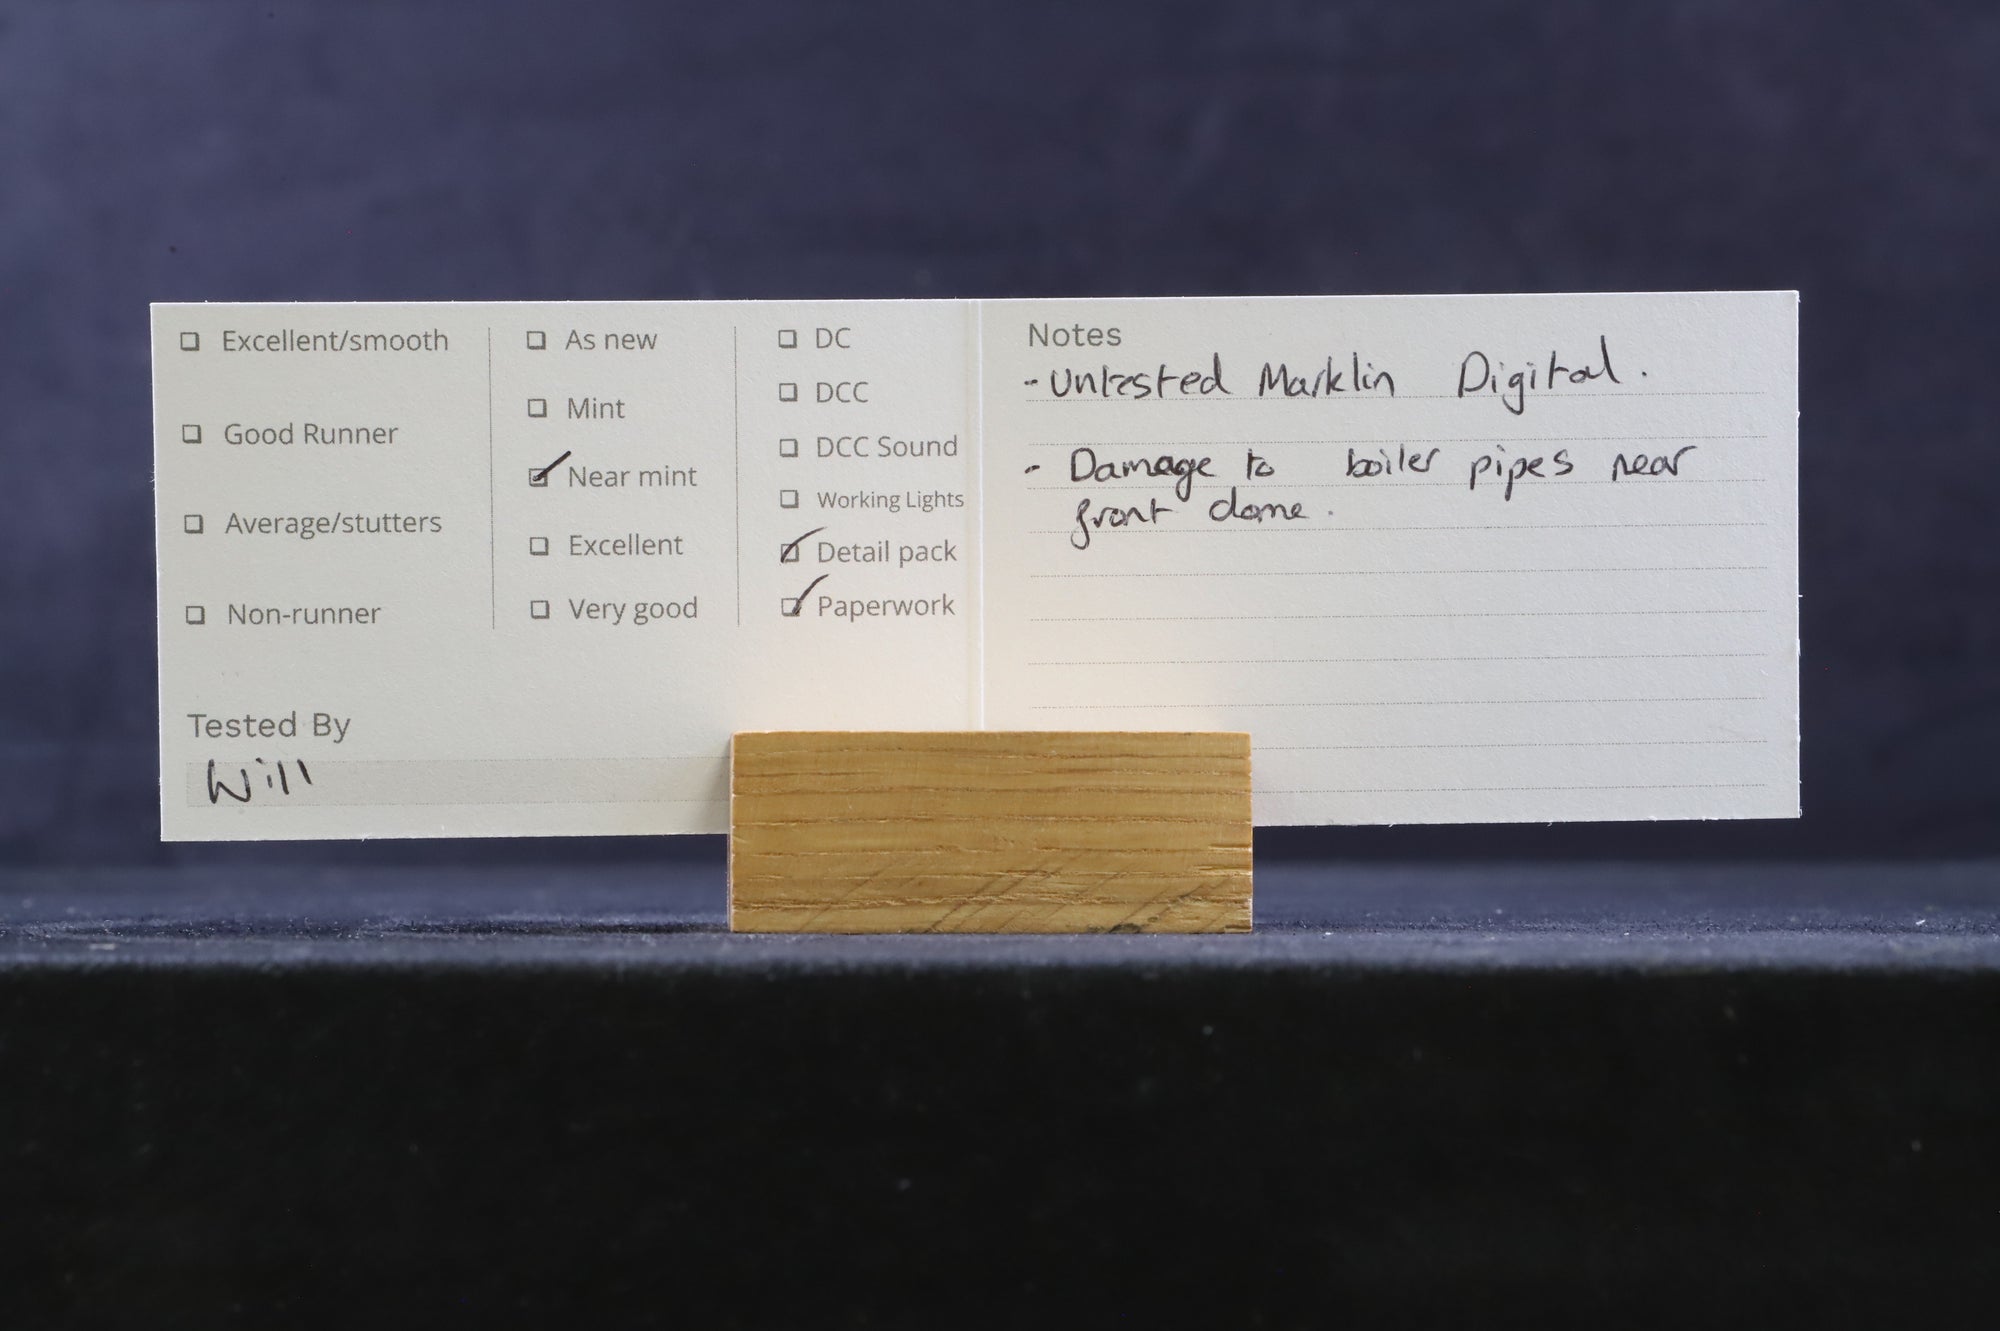 ❏ Excellent/smooth
❏ Good Runner
❏ Average/stutters
❏ Non-runner
❏ As new
❏ Mint
☑ Near mint
❏ Excellent
❏ Very good
❏ DC
❏ DCC
❏ DCC Sound
❏ Working Lights
☑ Detail pack
☑ Paperwork
Tested By
Will
Notes
- Untested Marklin Digital.
- Damage to boiler pipes near
front dome.